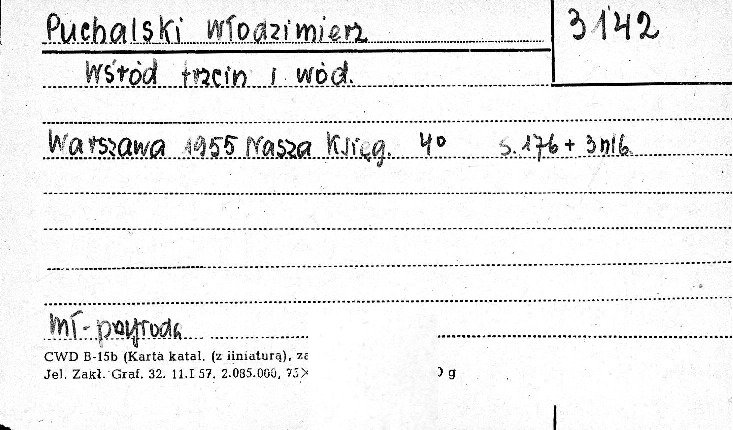 Puchalski Włodzimierz 3142
Wśród trzcin i wód.
Warszawa 1955 Nasza Księg. 4° s. 176 + 3 nlb.
Mł - przyroda
CWD B-15b (Karta katal. (z liniaturą), za
Jel. Zakł. Graf. 32. 11.I 57. 2.085.000, 75× 0 g